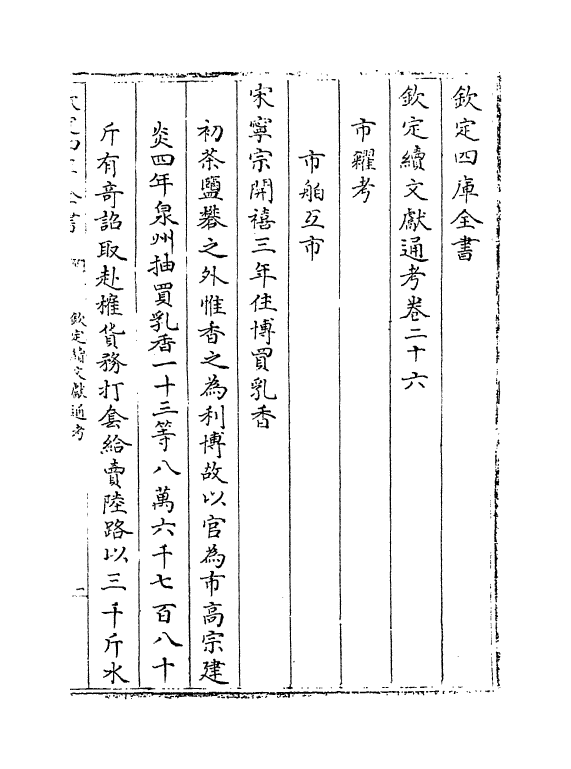 欽定四庫全書
欽定續文獻通考卷二十六
市糴考
市舶互市
宋寧宗開禧三年住博買乳香
初茶鹽礬之外惟香之為利博故以官為市高宗建
炎四年泉州抽買乳香一十三等八萬六千七百八十
斤有奇詔取赴榷貨務打套給賣陸路以三千斤水
欽定四庫全書
欽定續文獻通考
一